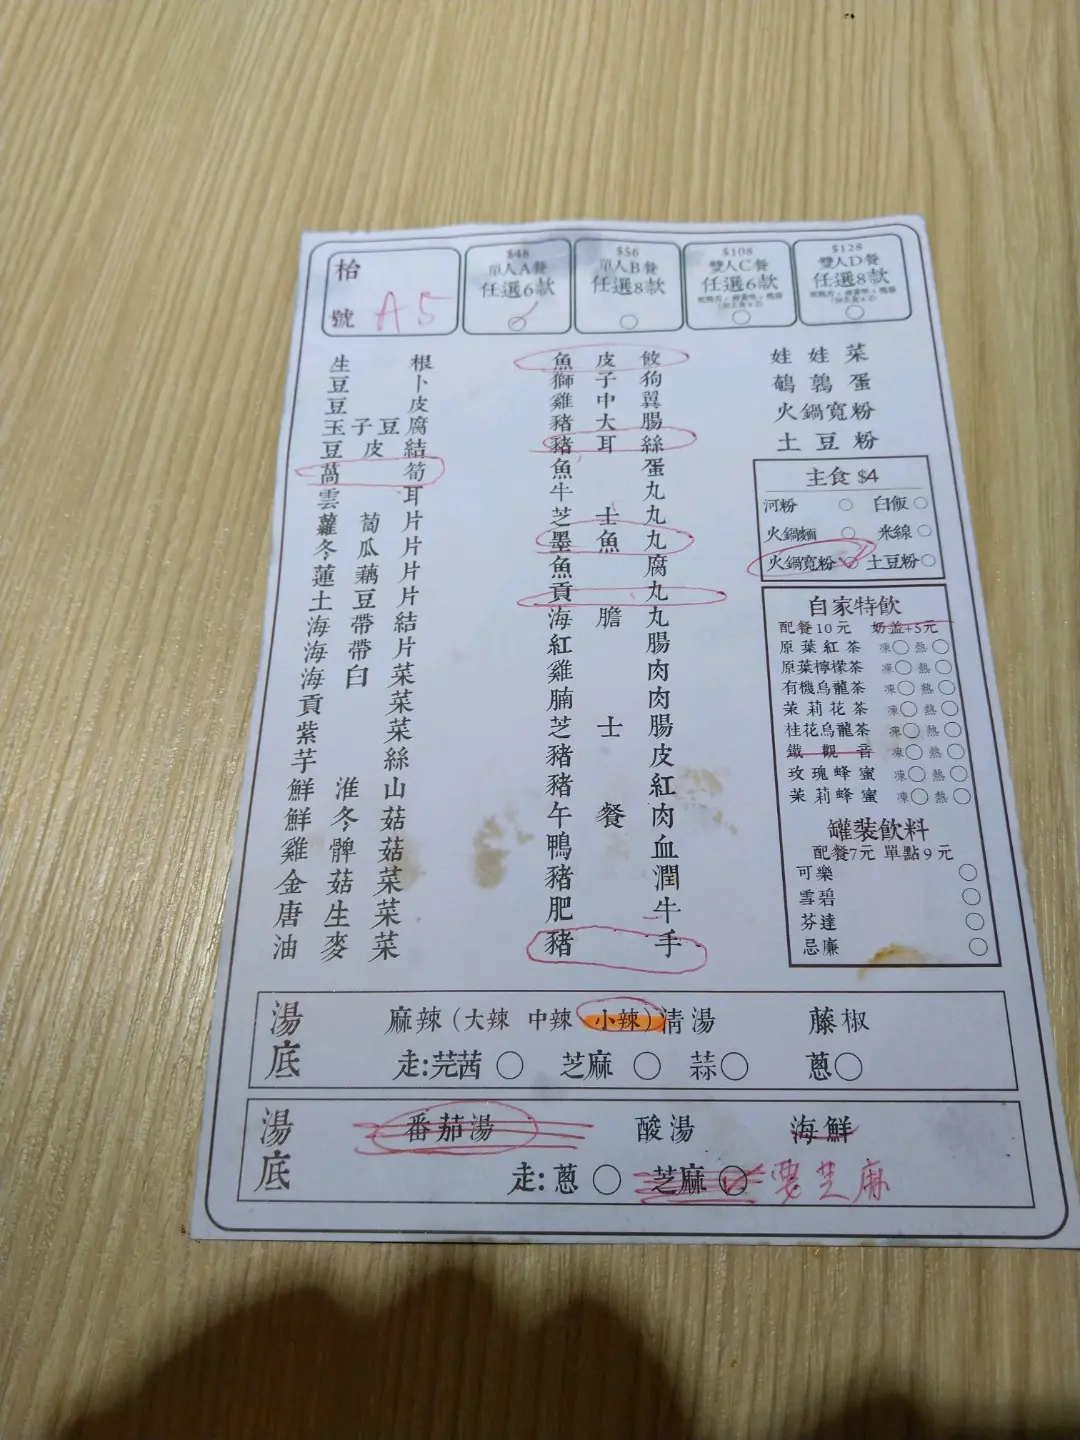 枱號 A5
$48
單人A餐
任選6款
$56
單人B餐
任選8款
$108
雙人C餐
任選6款
$128
雙人D餐
任選8款
生根
豆卜
豆皮
玉子豆腐
豆皮結
萵筍
雲耳
蘿蔔片
冬瓜片
蓮藕片
土豆片
海帶結
海帶片
海白菜
貢菜
紫菜
芋絲
鮮淮山
鮮冬菇
雞髀菇
金菇菜
唐生菜
油麥菜
魚皮餃
獅子狗
雞中翼
豬大腸
豬耳絲
魚蛋
牛丸
芝士丸
墨魚丸
魚腐
貢丸
海膽丸
紅腸
雞肉
腩肉
芝士腸
豬皮
豬紅
午餐肉
鴨血
豬潤
肥牛
豬手
娃娃菜
鵪鶉蛋
火鍋寬粉
土豆粉
主食 $4
河粉 白飯
火鍋麵 米線
火鍋寬粉 土豆粉
自家特飲
配餐10元 奶盖+5元
原葉紅茶 凍 熱
原葉檸檬茶 凍 熱
有機烏龍茶 凍 熱
茉莉花茶 凍 熱
桂花烏龍茶 凍 熱
鐵觀音 凍 熱
玫瑰蜂蜜 凍 熱
茉莉蜂蜜 凍 熱
罐裝飲料
配餐7元 單點9元
可樂
雪碧
芬達
忌廉
湯底
麻辣(大辣 中辣 小辣) 清湯 藤椒
走:芫茜 芝麻 蒜 蔥
湯底
番茄湯 酸湯 海鮮
走:蔥 芝麻 要芝麻